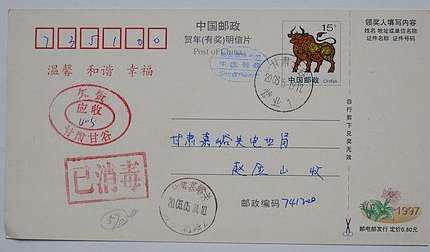 735100
中国邮政
贺年(有奖)明信片
Post of China
15分
中国邮政
CHINA
领奖人填写内容
姓名 地址或单位名称
证件名称 证件号码
温馨 和谐 幸福
欠资
应收
甘肃甘谷
甘肃嘉峪关电业局
赵金山 收
已消毒
甘肃嘉峪关
邮政编码 741200
自行剪下兑奖无效
1997
邮电部发行 定价0.80元